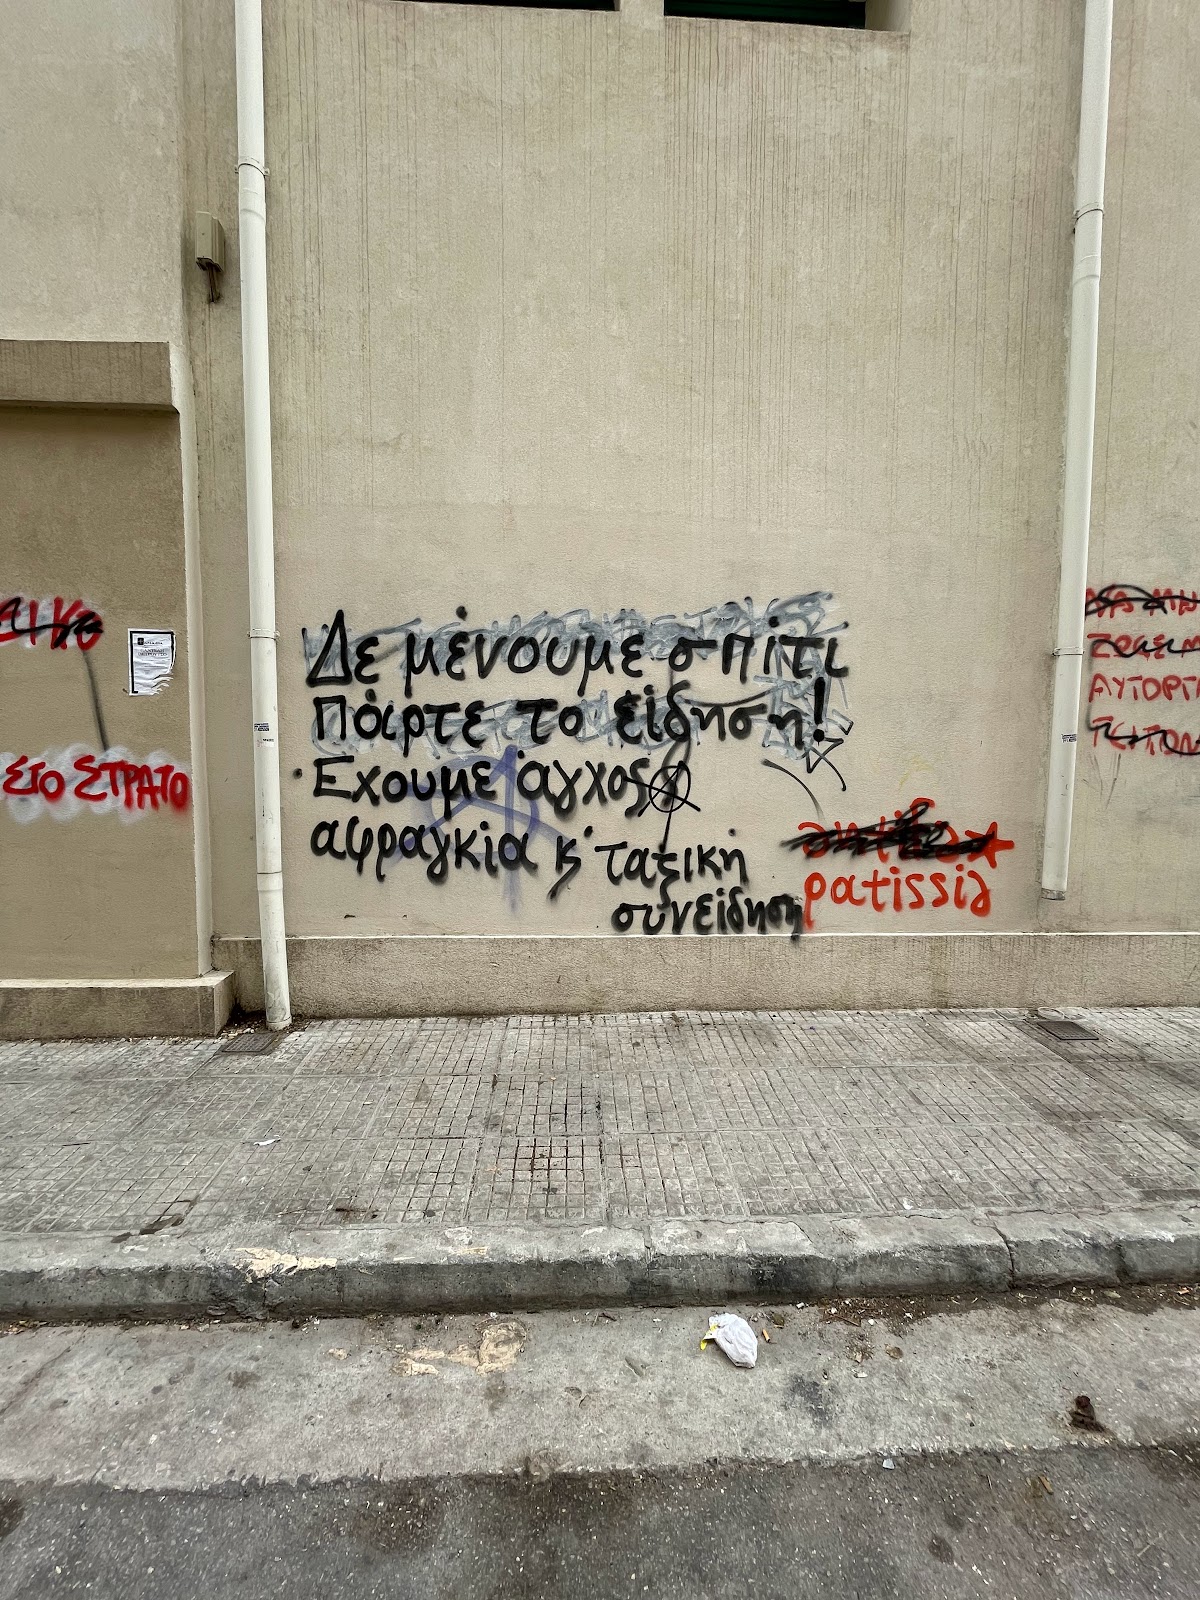 Δε μένουμε σπίτι
Πάρτε το είδηση!
Έχουμε άγχος
αφραγκία κ' ταξική
συνείδηση
patissia
ΣΤΟ ΣΤΡΑΤΟ